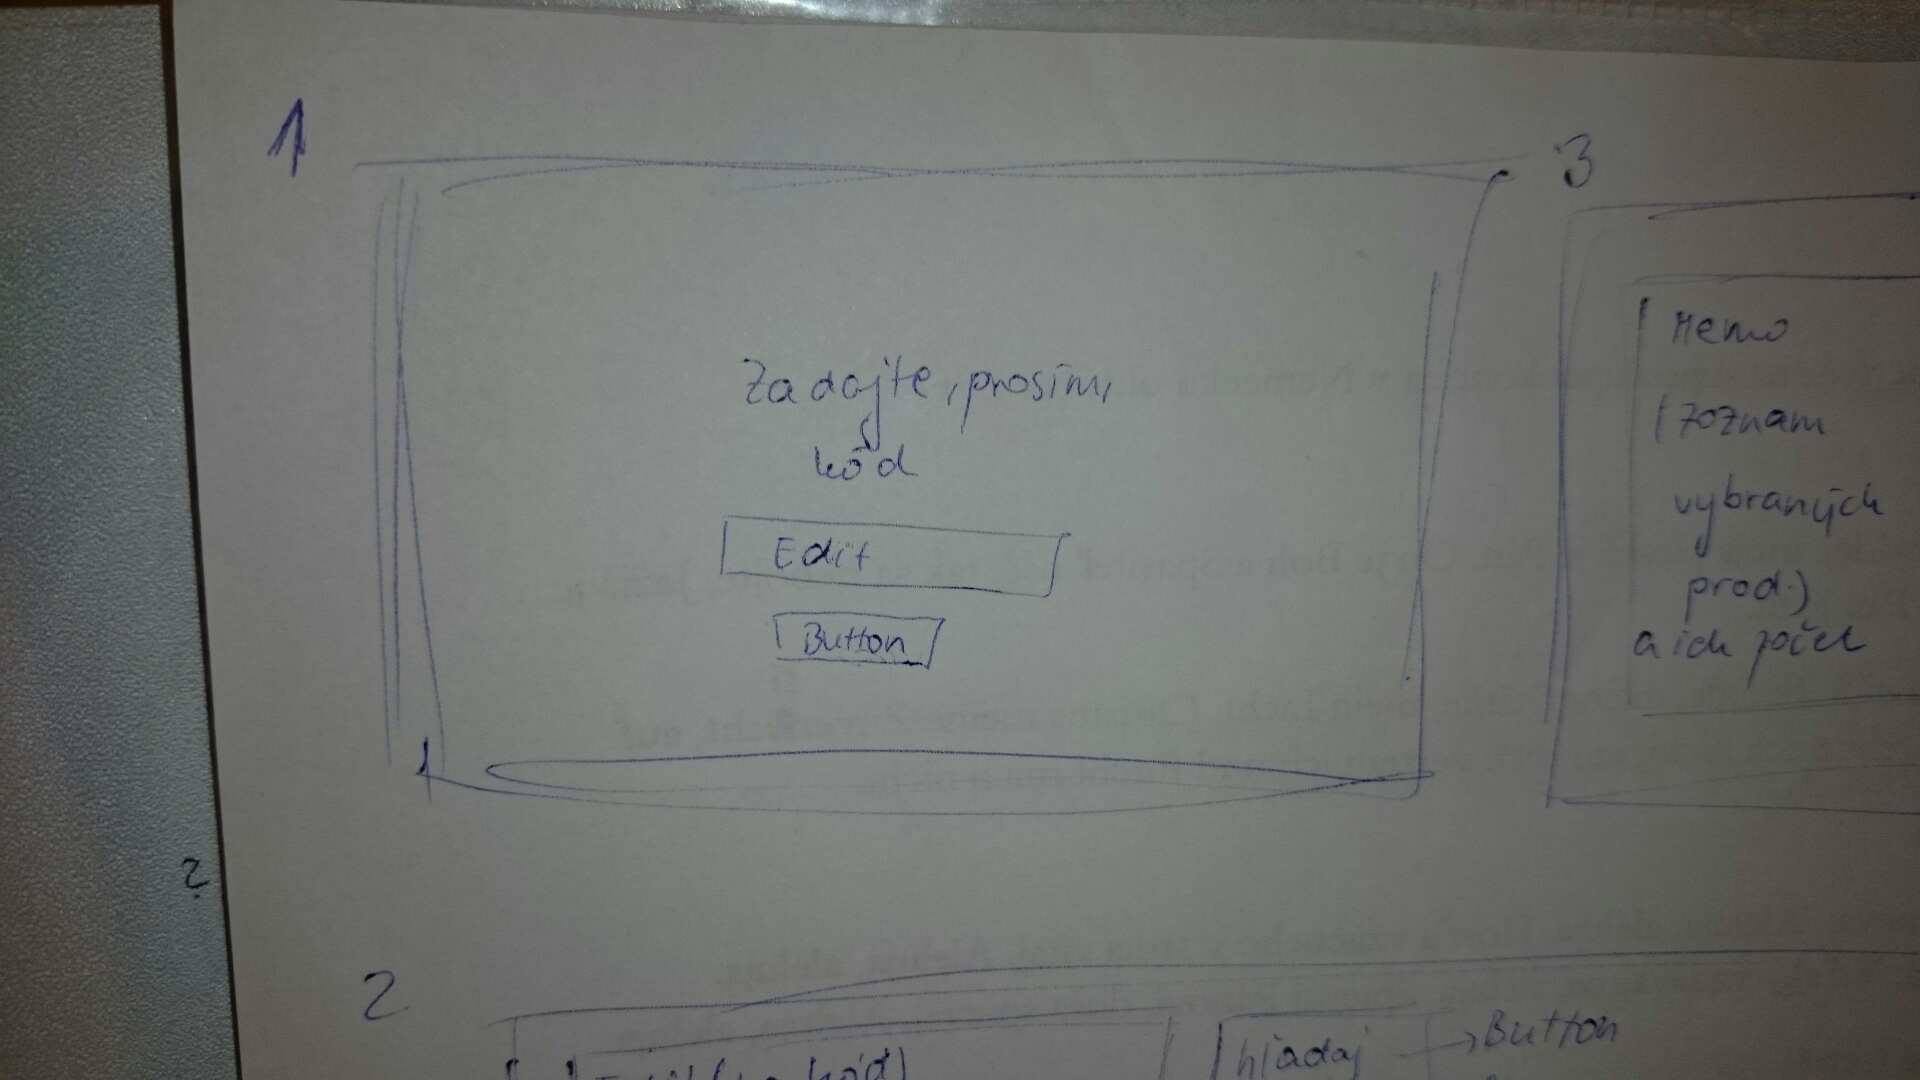 1
Zadajte, prosím,
kód
Edit
Button
3
Memo
(zoznam
vybraných
prod.)
a ich počet
2
2
kód)
hľadaj → Button